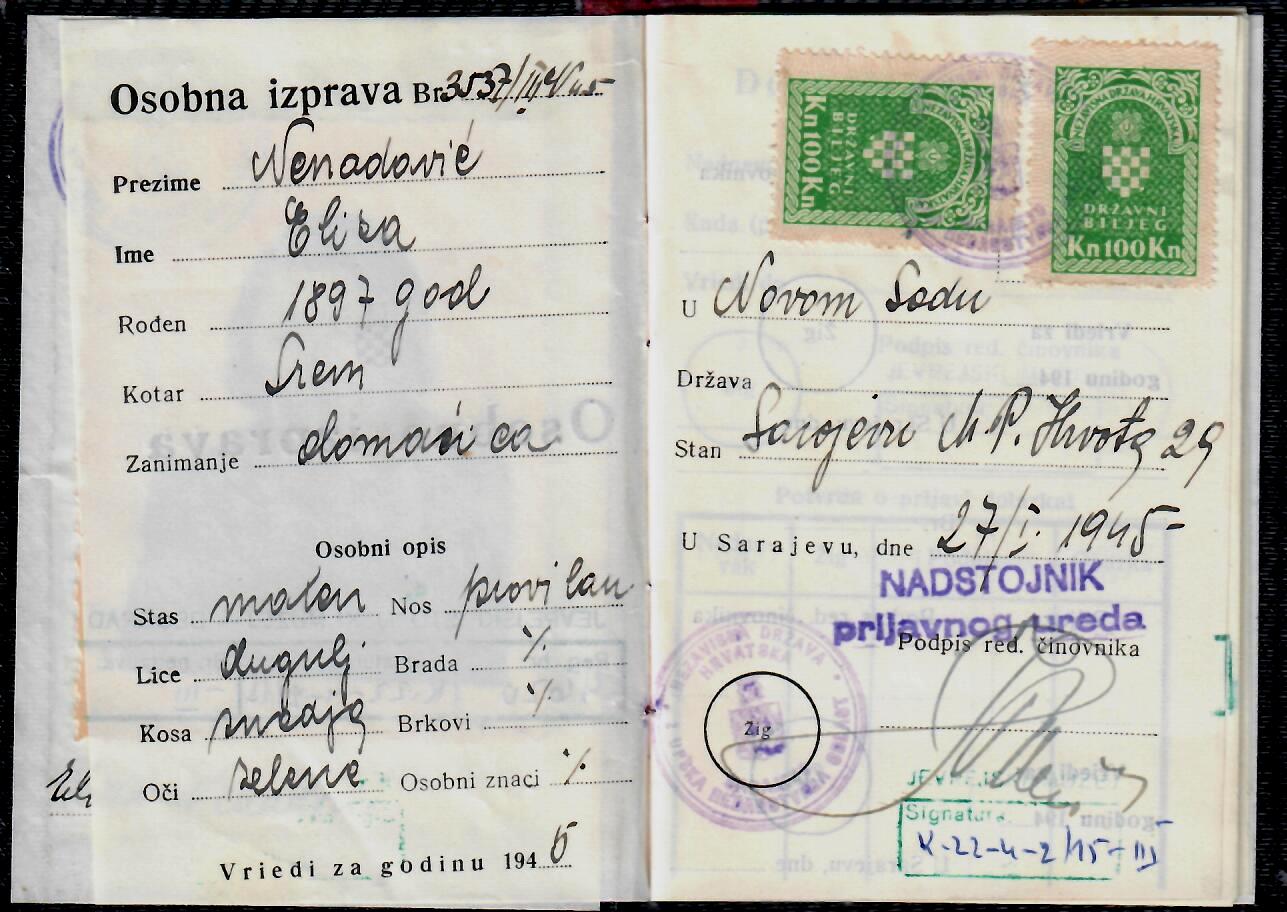 Osobna izprava Br. 3537/III
Prezime Nenadović
Ime Eliza
Rođen 1897 god
Kotar Srem
Zanimanje domaćica
Osobni opis
Stas malen Nos pravilan
Lice dugulj Brada %
Kosa smedja Brkovi %
Oči zelene Osobni znaci %
Vriedi za godinu 1945
NEZAVISNA DRŽAVA HRVATSKA
DRŽAVNI
BILJEG
Kn 100 Kn
NEZAVISNA DRŽAVA HRVATSKA
DRŽAVNI
BILJEG
Kn 100 Kn
U Novom Sadu
Država
Stan Sarajevu M. P. Hrvota 29
U Sarajevu, dne 27/I. 1945-
NADSTOJNIK
prijavnog ureda
Podpis red. činovnika
NEZAVISNA DRŽAVA
HRVATSKA
Žig
Signatura
K-22-4-2/15-III